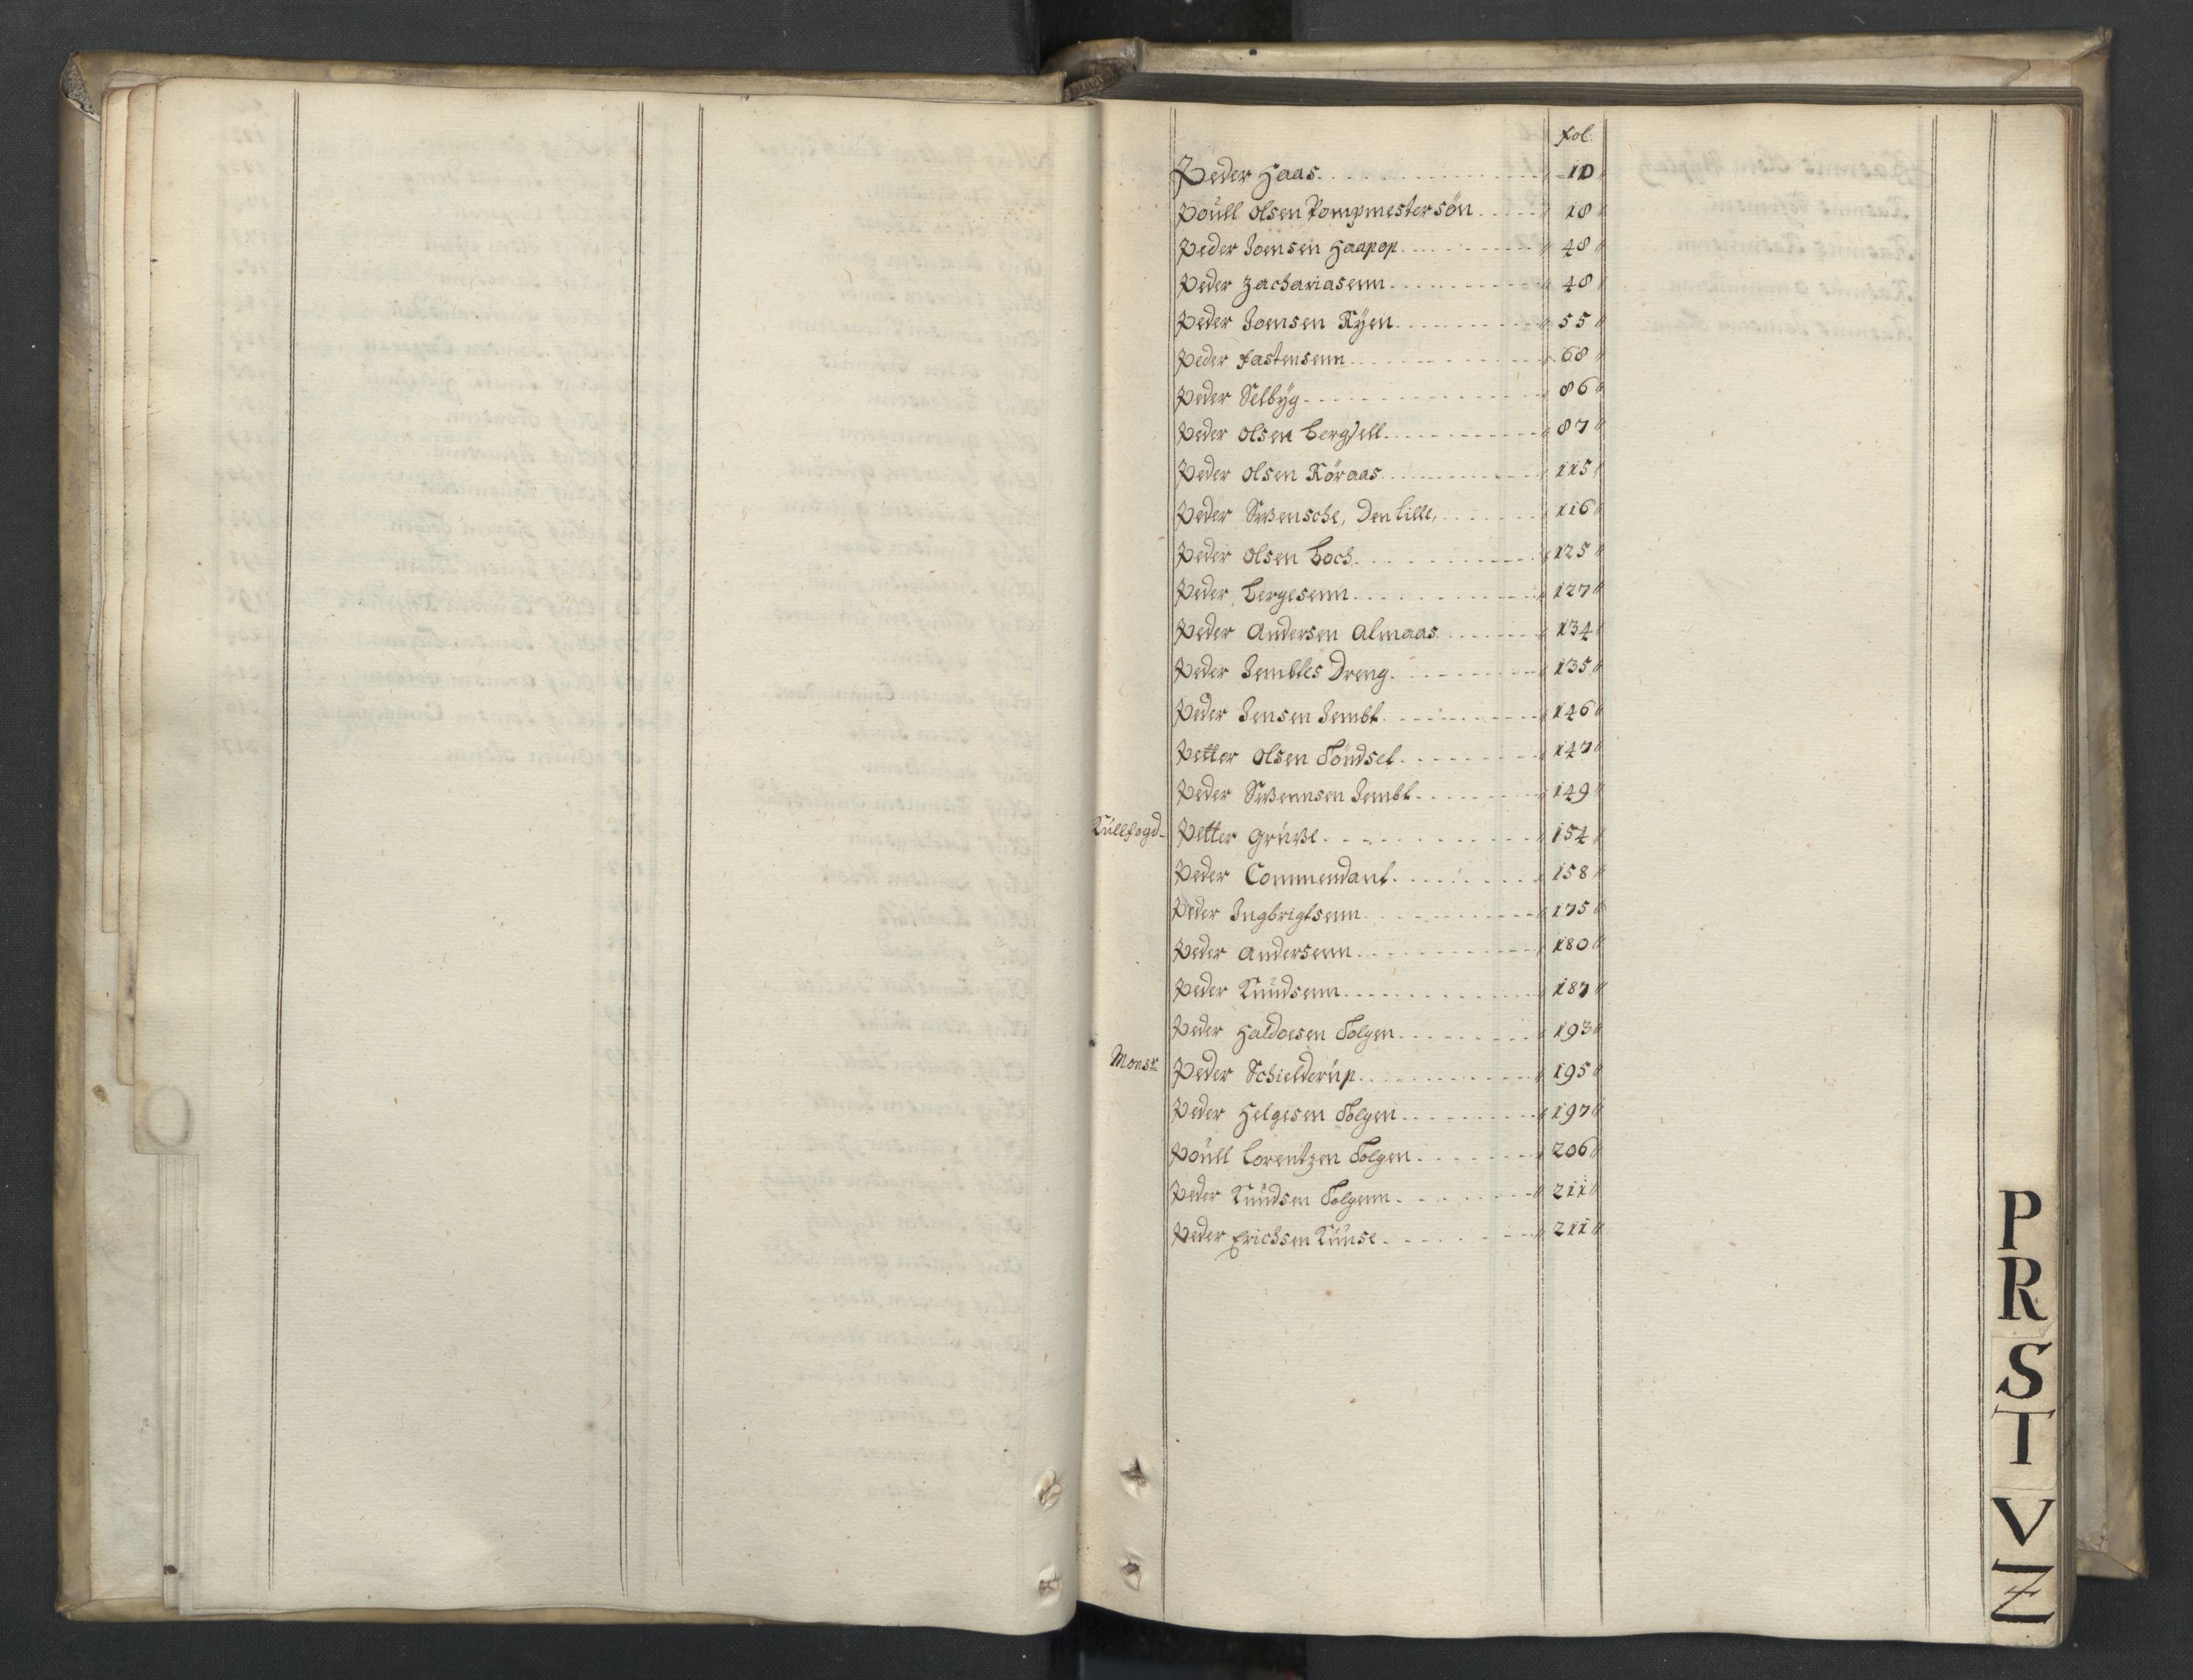 fol:
Peder Haas 10
Poüll Olsen Pompmestersön 18
Peder Joensen Haapop 48
Peder Zachariasenn 48
Peder Joensen Ryen 55
Peder Fastensenn 68
Peder Selbÿg 86
Peder Olsen Bergsell 87
Peder Olsen Röraas 115
Peder Swensche, Den Lille, 116
Peder Olsen Boch 125
Peder Bergesenn 127
Peder Andersen Almaas 134
Peder Jembtes Dreng 135
Peder Jensen Jembt 146
Petter Olsen Töndset 147
Peder Swennsen Jembt 149
Küllfogd Petter Grüwe 154
Peder Commendant 158
Peder Ingbrigtsenn 175
Peder Andersenn 180
Peder Knüdsenn 187
Peder Haldoesen Tolgen 193
Monsr Peder Schielderüp 195
Peder Helgesen Tolgen 197
Poüll Lorentzen Tolgen 206
Peder Knüdsen Tolgenn 211
Peder Erichsen Künse 211
P
R
S
T
V
Z